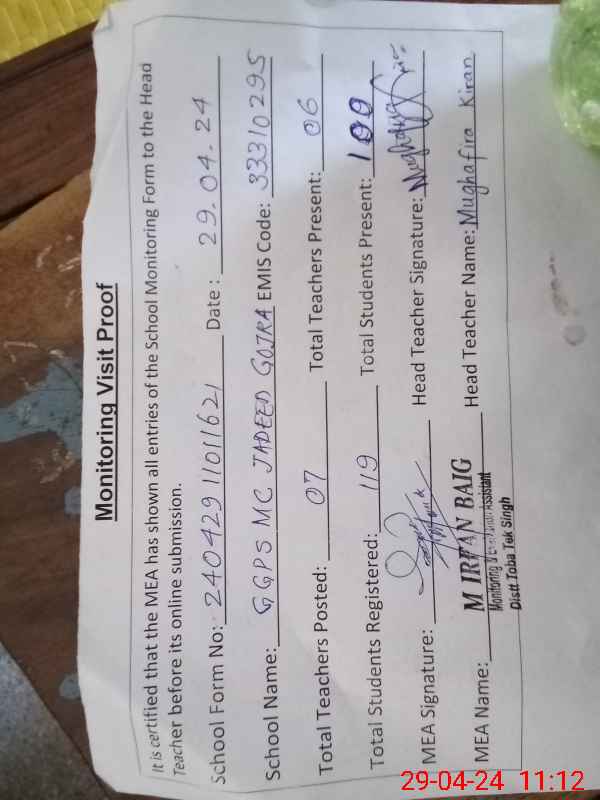 Monitoring Visit Proof
It is certified that the MEA has shown all entries of the School Monitoring Form to the Head
Teacher before its online submission.
School Form No: 24042911011621 Date : 29.04.24
School Name: GGPS MC JADEED GOJRA EMIS Code: 33310295
Total Teachers Posted: 07 Total Teachers Present: 06
Total Students Registered: 119 Total Students Present: 100
MEA Signature: Head Teacher Signature:
MEA Name: M IRFAN BAIG Head Teacher Name: Mughafira Kiran
Monitoring Assistant
Distt Toba Tek Singh
29-04-24 11:12